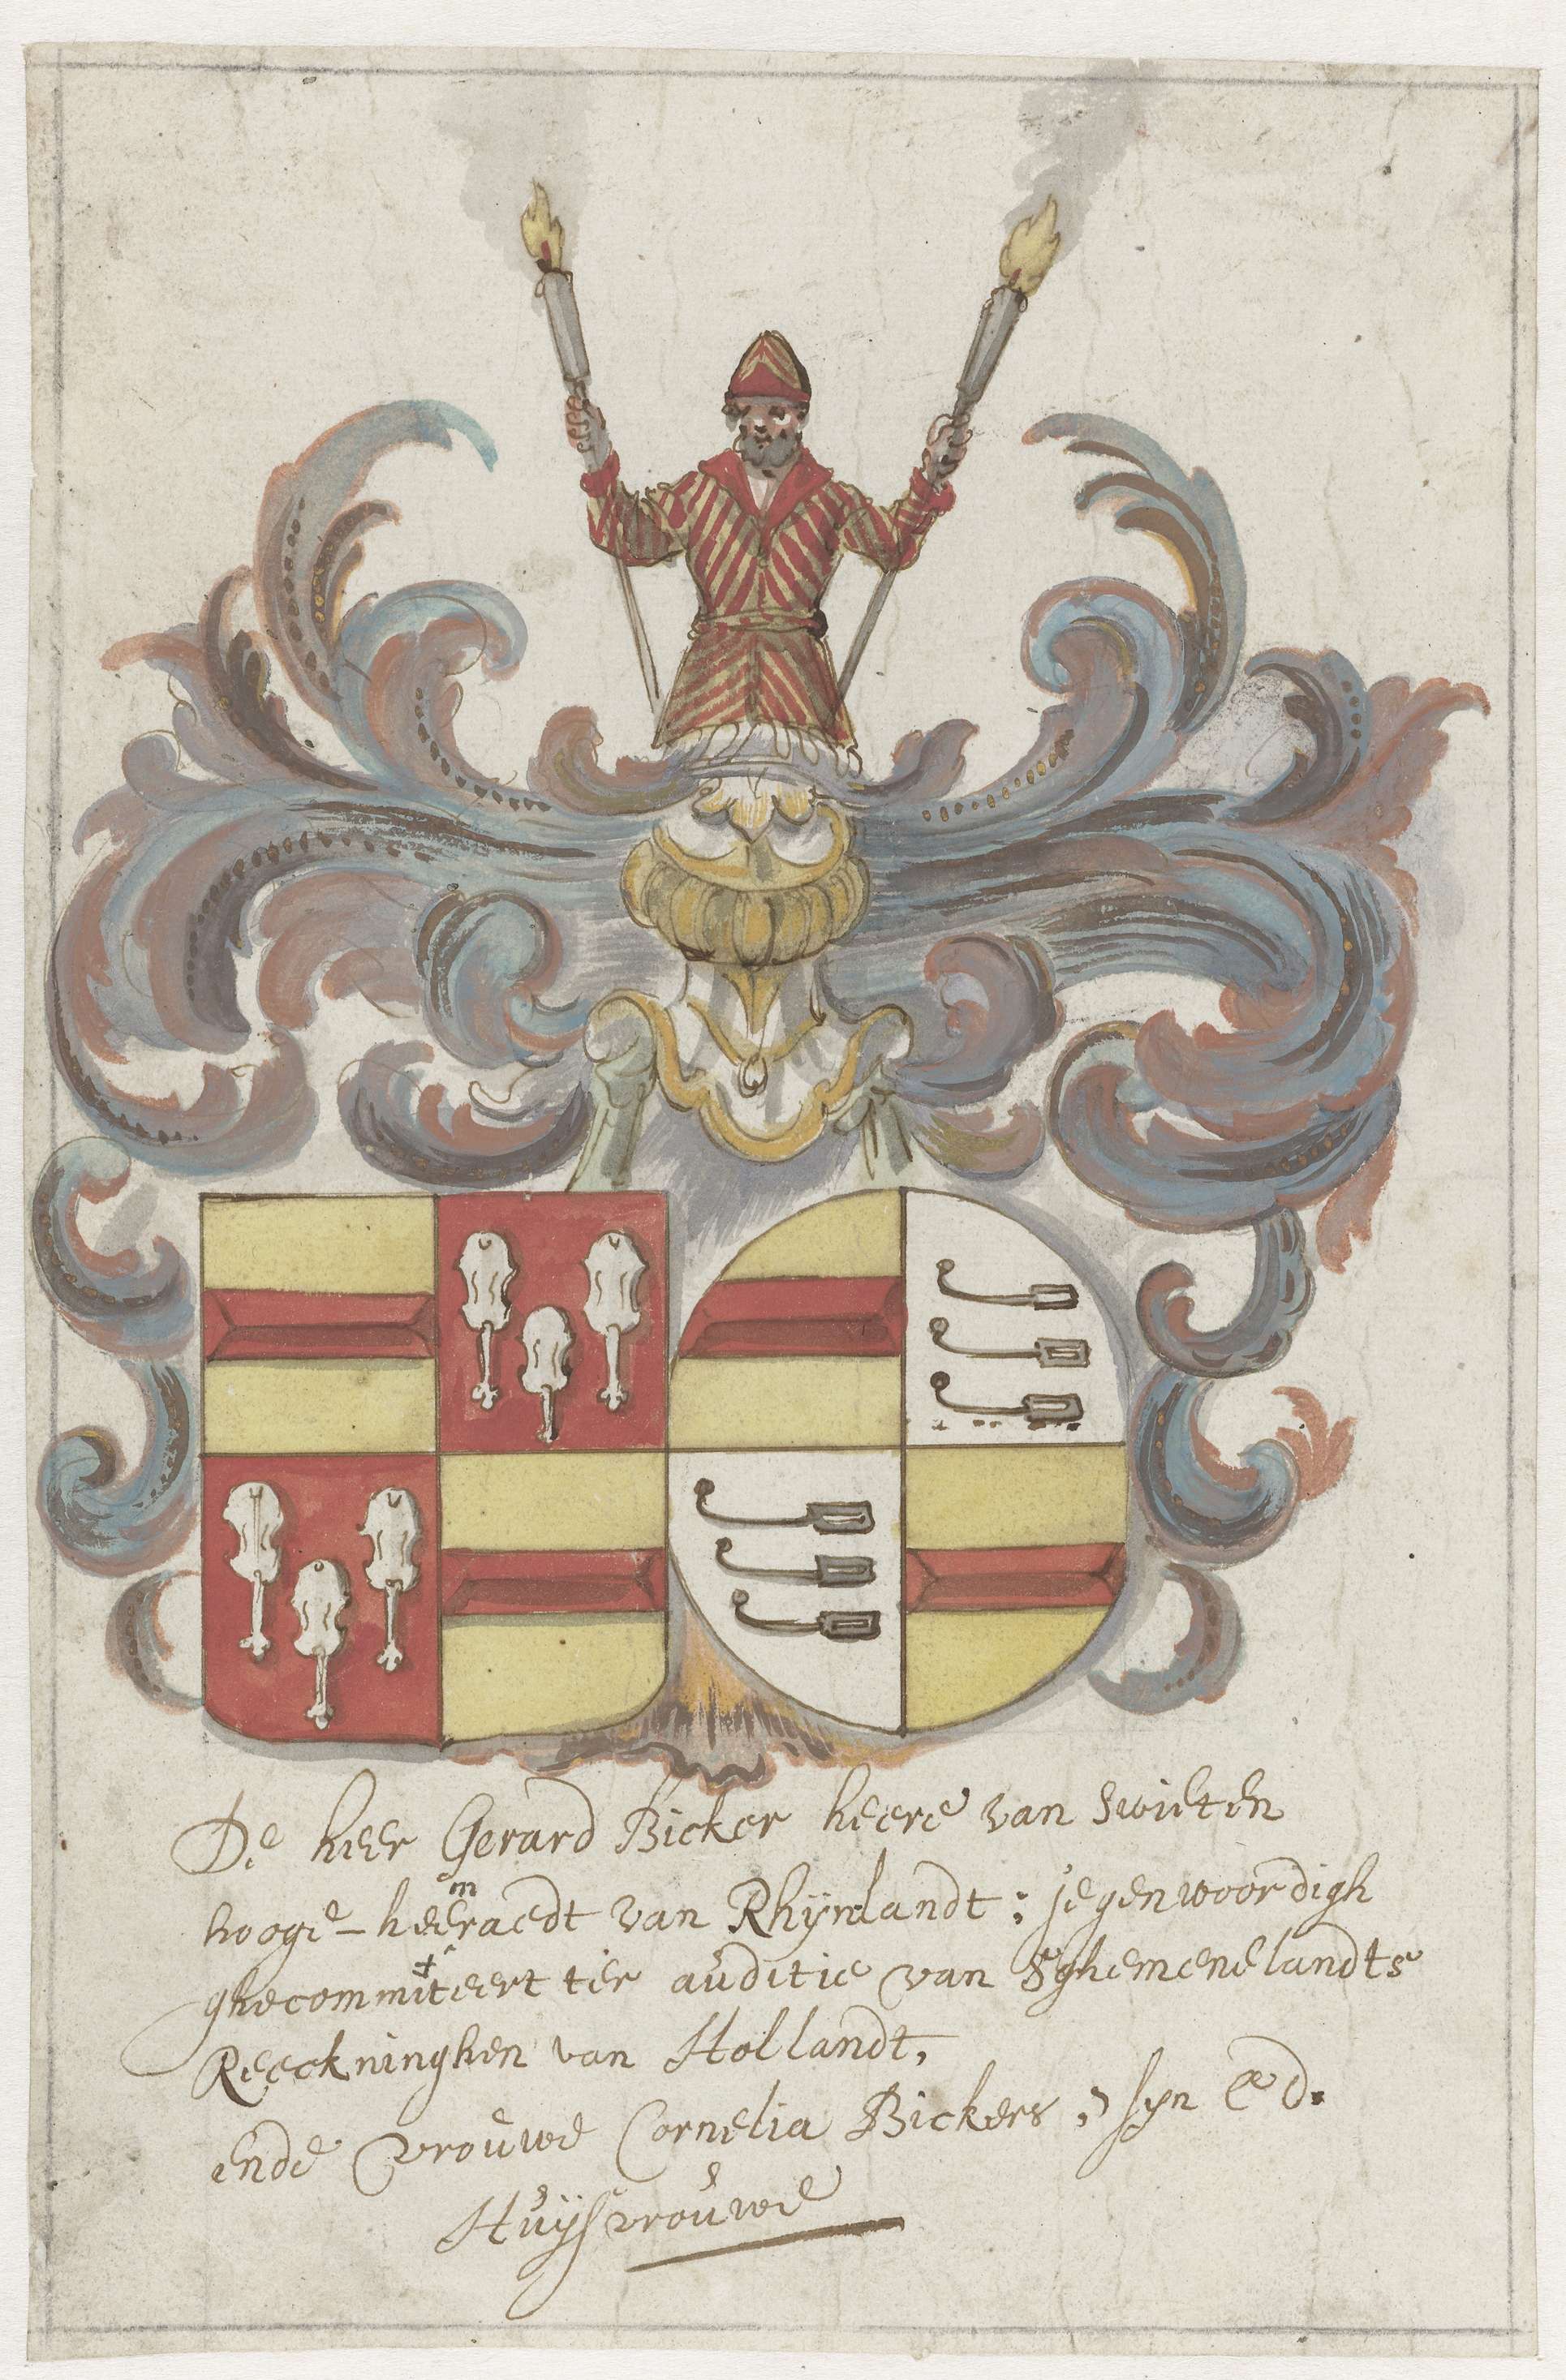 De heer Gerard Bicker heere van Swieten
hooge-heemraedt van Rhijnlandt; jegenwoordigh
ghecommitteert ter auditie van Sghemenelandts
Reeckninghen van Hollandt,
ende vrouwe Cornelia Bickers, syn Ed.
Huijsvrouwe